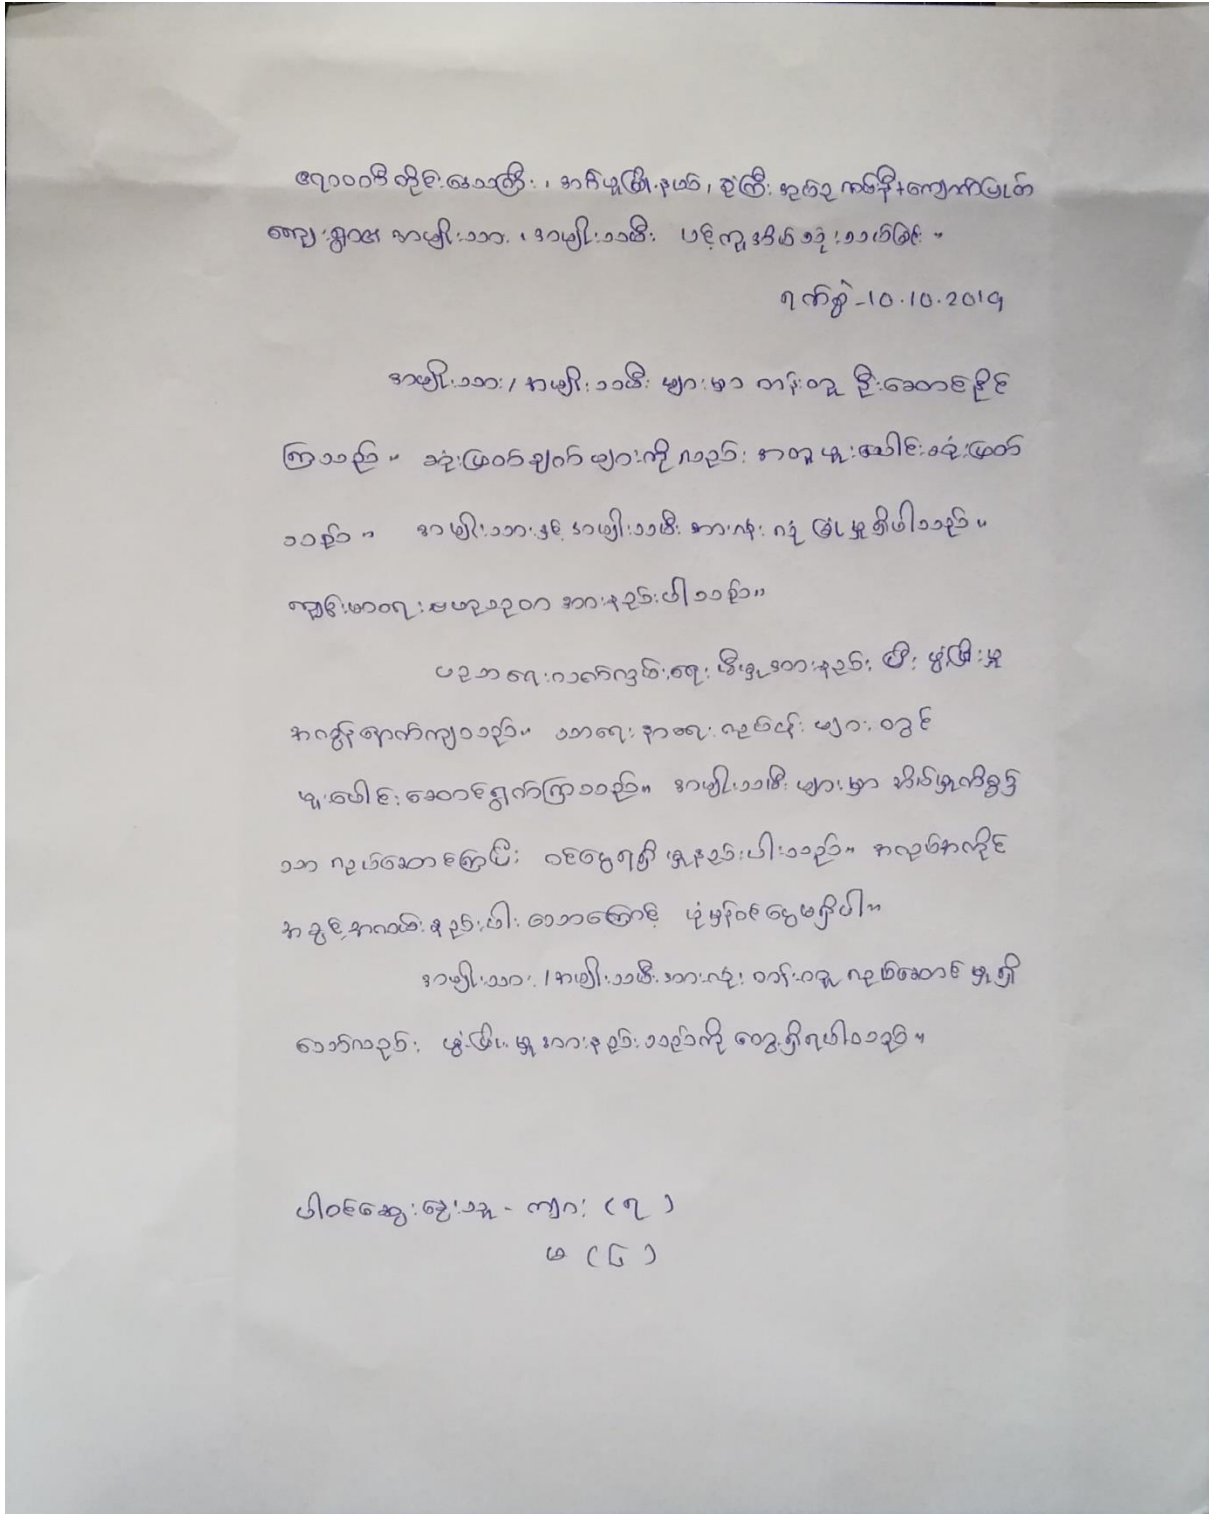 ဧရာဝတီတိုင်းဒေသကြီး၊ အင်္ဂပူမြို့နယ်၊ ကျေးရွာ၏ အမျိုးသား၊ အမျိုးသမီး ပင့်ကူအိမ်သုံးသပ်ခြင်း။
ရက်စွဲ-10.10.2019
အမျိုးသား/အမျိုးသမီး များမှာ တန်းတူ ဦးဆောင်နိုင်
ကြသည်။ ဆုံးဖြတ်ချက်များကိုလည်း အတူပူးပေါင်းဆုံးဖြတ်
သည်။ အမျိုးသားနှင့် အမျိုးသမီး အားလုံး လုံခြုံမှုရှိပါသည်။
ကျန်းမာရေးဗဟုသုတ အားနည်းပါသည်။
ပညာရေးထောက်ပံ့ရေး အားနည်းပြီး ဖွံ့ဖြိုးမှု
အလွန်နောက်ကျသည်။ သာရေး နာရေး လုပ်ငန်းများတွင်
ပူးပေါင်းဆောင်ရွက်ကြသည်။ အမျိုးသမီးများမှာ အိမ်မှုကိစ္စ
သာ လုပ်ဆောင်ကြပြီး ဝင်ငွေရရှိမှုနည်းပါးသည်။ အလုပ်အကိုင်
အခွင့်အလမ်းနည်းပါးသောကြောင့် ပုံမှန်ဝင်ငွေမရှိပါ။
အမျိုးသား/အမျိုးသမီးအားလုံး တန်းတူ လုပ်ဆောင်မှုရှိ
သော်လည်း ဖွံ့ဖြိုးမှုအားနည်းသည်ကို တွေ့ရှိရပါသည်။
ပါဝင်ဆွေးနွေးသူ - ကျား (၇)
မ (၆)